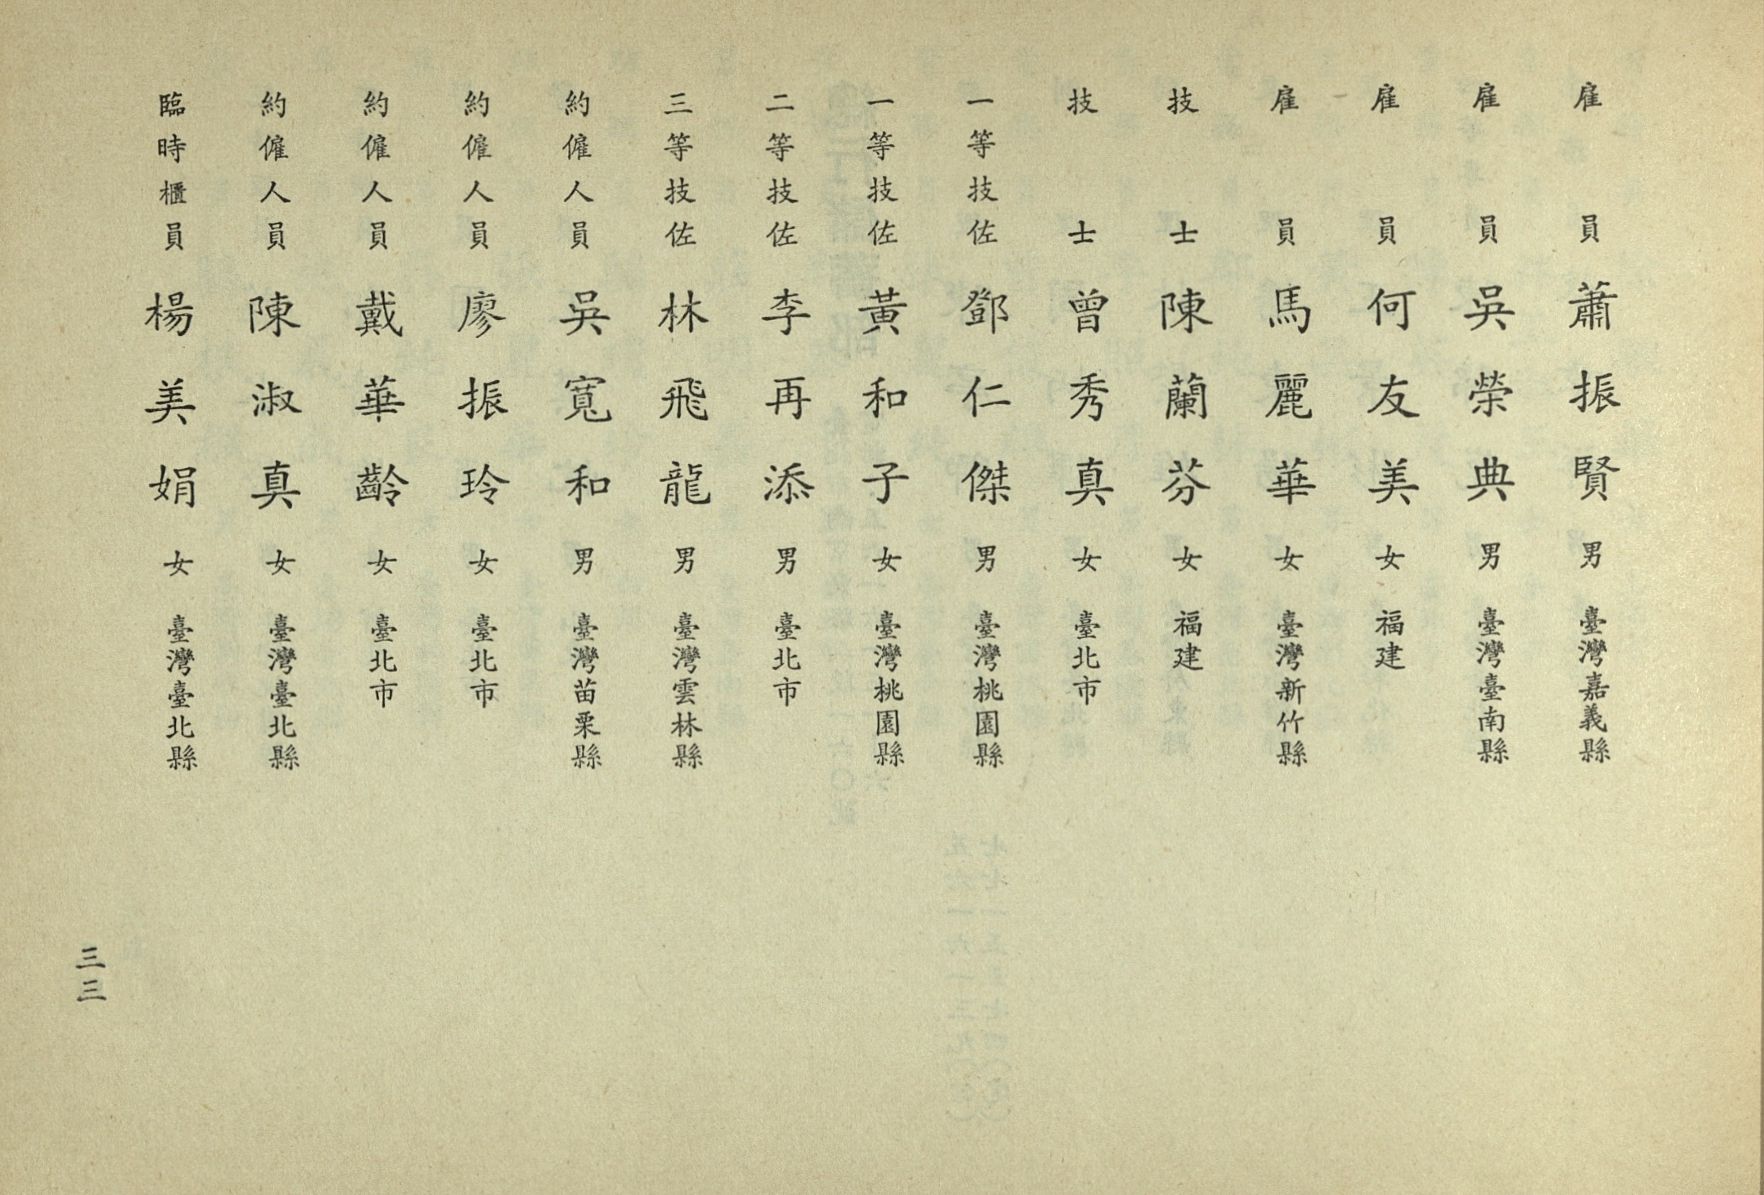 雇員 蕭振賢 男 臺灣嘉義縣
雇員 吳榮典 男 臺灣臺南縣
雇員 何友美 女 福建
雇員 馬麗華 女 臺灣新竹縣
技士 陳蘭芬 女 福建
技士 曾秀真 女 臺北市
一等技佐 鄧仁傑 男 臺灣桃園縣
一等技佐 黃和子 女 臺灣桃園縣
二等技佐 李再添 男 臺北市
三等技佐 林飛龍 男 臺灣雲林縣
約僱人員 吳寬和 男 臺灣苗栗縣
約僱人員 廖振玲 女 臺北市
約僱人員 戴華齡 女 臺北市
約僱人員 陳淑真 女 臺灣臺北縣
臨時櫃員 楊美娟 女 臺灣臺北縣
三三